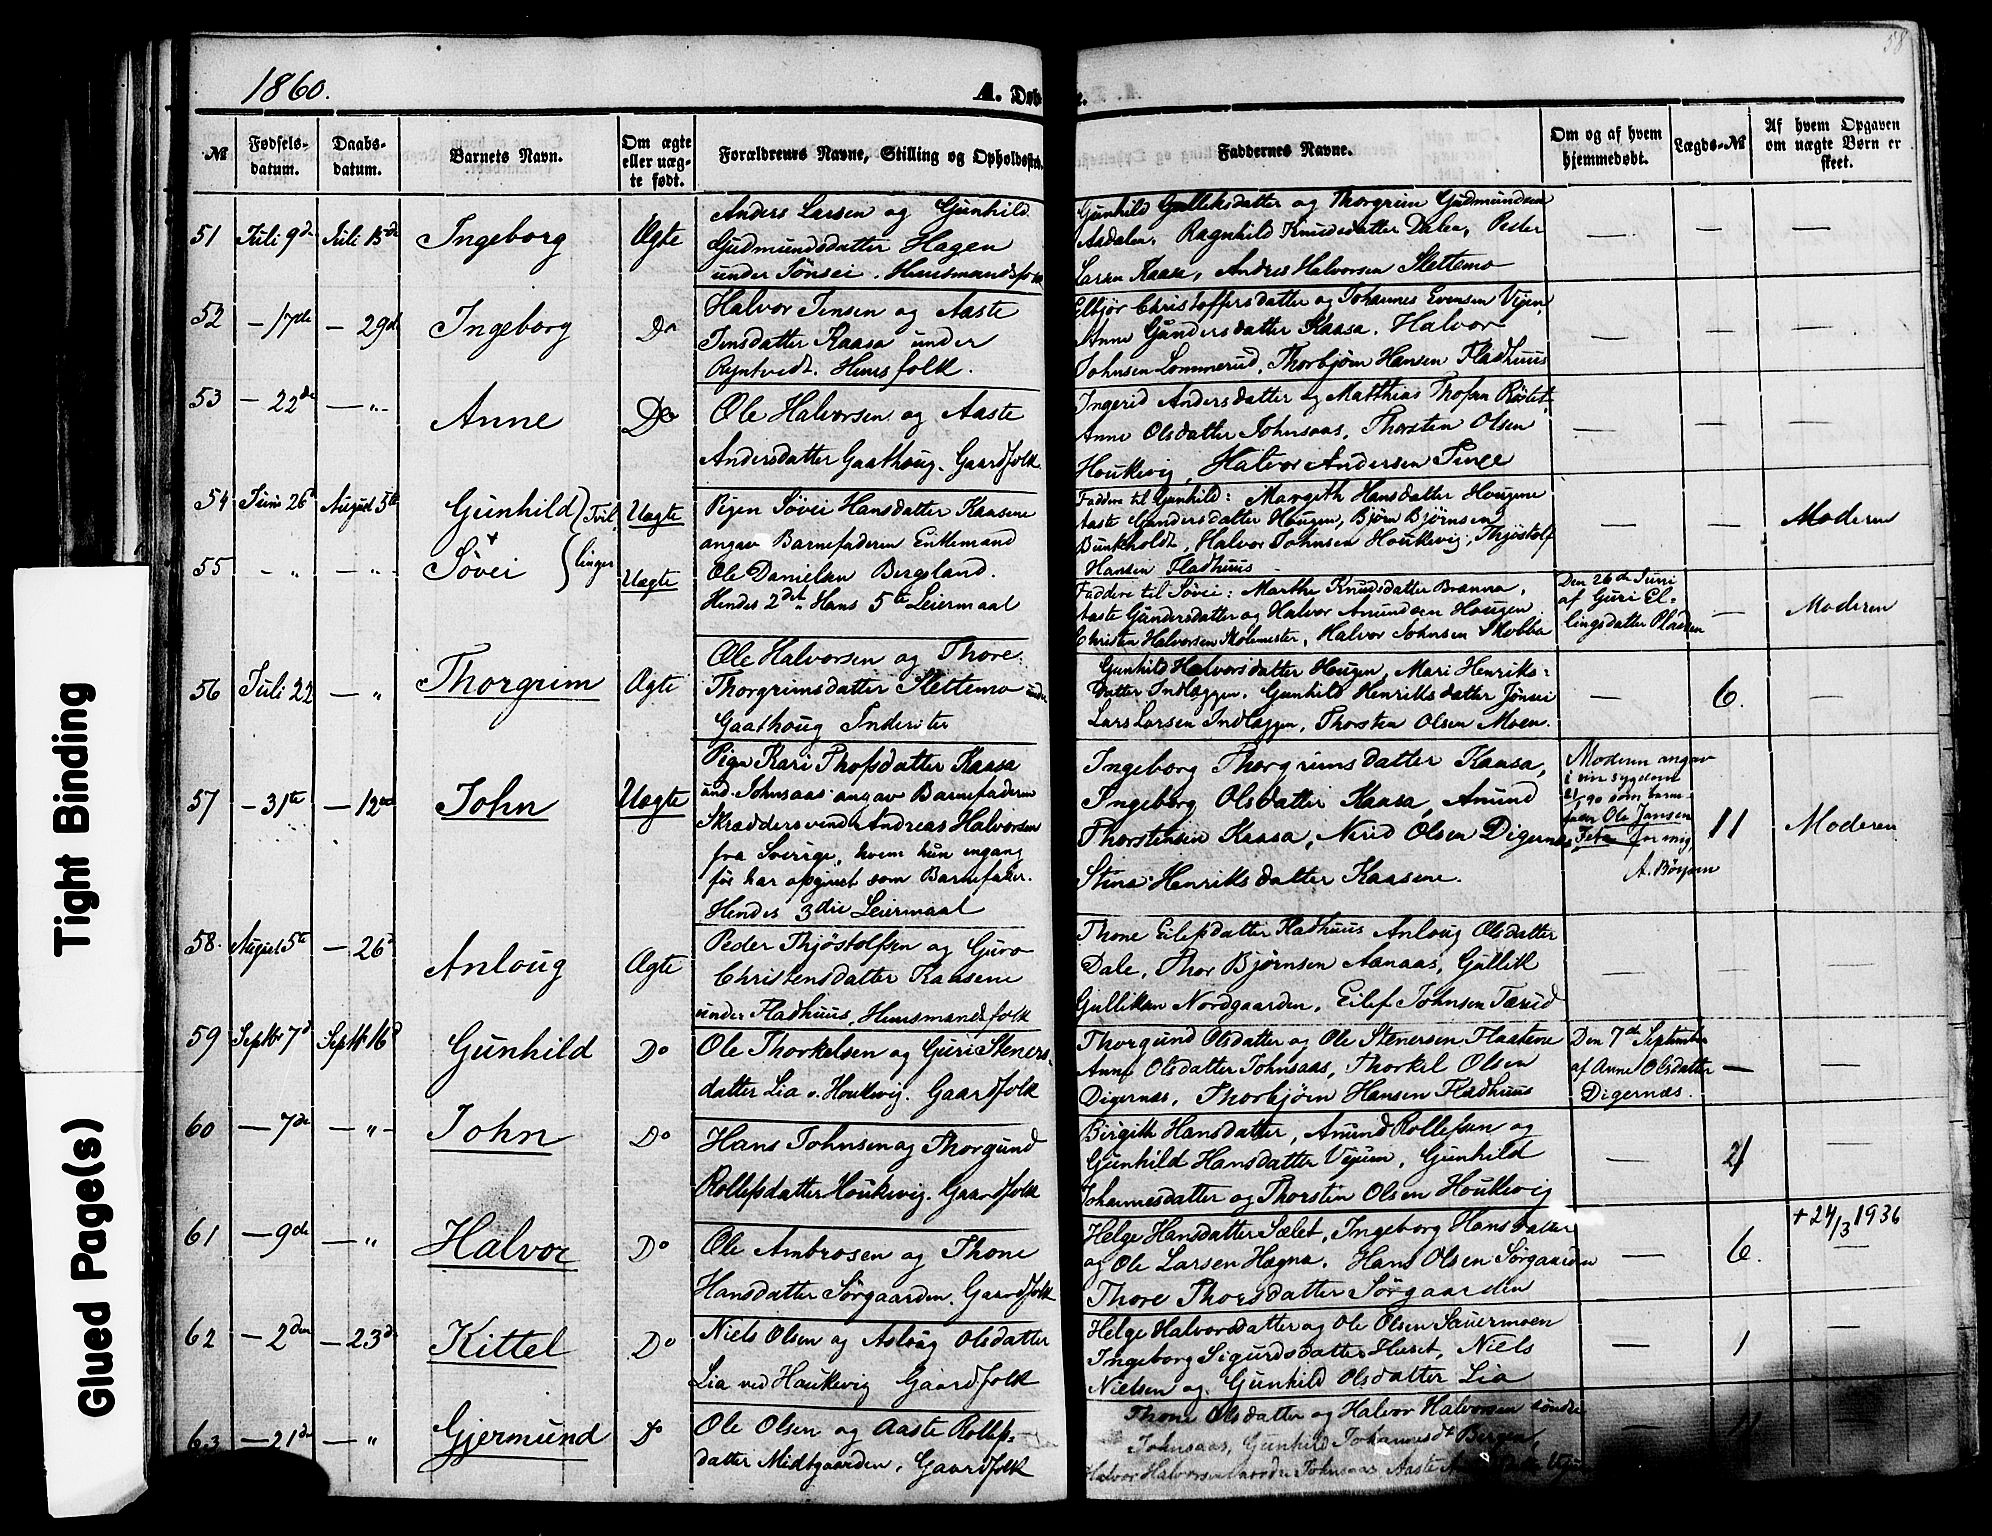 1860.
A. Døb
e.
58
№
Fødsels-
datum.
Daabs-
datum.
Barnets Navn.
Om ægte
eller uæg-
te født.
Forældrenes Navne, Stilling og Opholdsst
Faddernes Navne.
Om og af hvem
hjemmedøbt.
Lægds-№
Af hvem Opgaven
om uægte Børn er
skeet.
51 Juli 9de Juli 15de Ingeborg Ægte
Anders Larsen og Gunhild
Gudmundsdatter Hagen
under Jønsei. Huusmandsfolk
Gunhild Gulliksdatter og Thorgrim Gudmundsen
Aasdalen, Ragnhild Knudsdatter Dalen, Peder
Larsen Kaasa, Andreas Halvorsen Slettemo
— — —
52 — 17de — 29de Ingeborg Do
Halvor Jensen og Aaste
Jensdatter Kaasa under
Ryntvedt. Huusfolk.
Elbjør Christoffersdatter og Johannes Evensen Vejen,
Anne Gundersdatter Kaasa. Halvor
Johnsen Lommerud, Thorbjørn Hansen Fladhuus
— — —
53 — 22de — „ Anne Do
Ole Halvorsen og Aaste
Andersdatter Gaathoug. Gaardfolk
Ingerid Andersdatter og Matthias Thofsen
Anne Olsdatter Johnsaas, Thorsten Olsen
Houkevig, Halvor Andersen
— — —
54 Juni 26de August 5te Gunhild Tvil Uægte
Pigen Søvei Hansdatter Kaasene
angav Barnefaderen Enkemand
Faddere til Gunhild: Margith Hansdatter Hougene
Aaste Gundersdatter Hougen, Bjørn Bjørnsen
Bunkholdt, Halvor Johnsen Houkevig, Thjøstolf
Hansen Fladhuus —
— — Moderen
55 — „ — „ Søvei linger Uægte
Ole Danielsen Bergsland.
Hendes 2det Hans 5te Leiermaal
Faddere til Søvei: Marthe Knudsdatter Brænna,
Aaste Gundersdatter og Halvor Amundsen Hougen,
Christen Halvorsen Molemester, Halvor Johnsen Skobba
Den 26de Juni
af Guri El-
lingsdatter Pladsen
— Moderen
56 Juli 22 — „ Thorgrim Ægte
Ole Halvorsen og Thore
Thorgrimsdatter Slettemo under
Gaathoug Inderster
Gunhild Halvorsdatter Hougen, Mari Henriks-
datter Indlæggen, Gunhild Henriksdatter Jønsei
Lars Larsen Indlæggen, Thorsten Olsen Moen.
— 6. —
57 — 31te — 12te John Uægte
Pigen Kari Thofsdatter Kaasa
und. Johnsaas angav Barnefaderen
Skræddersvend Andreas Halvorsen
fra Sverige, hvem hun engang
før har opgivet som Barnefader.
Hendes 3die Leiermaal
Ingeborg Thorgrimsdatter Kaasa,
Ingeborg Olsdatter Kaasa, Amund
Thorstensen Kaasa, Nerid Olsen Digernæs,
Stina Henriksdatter Kaasene.
Moderen angav
i sin sygdom
90 som barne-
fader Ole Jansen
for mig,
A. Børsen
11 Moderen
58. August 5te — 26de Anloug Ægte
Peder Thjøstolfsen og Guro
Christensdatter Kaasene
under Fladhuus, Huusmandsfolk
Thone Eilefsdatter Fladhuus Anloug Olsdatter
Dale, Thor Bjørnsen Aanaas, Gullik
Gulliksen Nordgaarden, Eilef Johnsen Tærud
— — —
59 Septbr 7de Septbr 16de Gunhild Do
Ole Thorkelsen og Guri Steners-
datter Lia v. Houkevig. Gaardfolk
Thorgund Olsdatter og Ole Stenersen Flaatene
Anne Olsdatter Johnsaas, Thorkel Olsen
Digernæs, Thorbjørn Hansen Fladhuus
Den 7de September
af Anne Olsdatter
Digernæs.
— —
60 — 7de — „ John Do
Hans Johnsen og Thorgund
Rollefsdatter Houkevig. Gaardfolk
Birgith Hansdatter, Amund Rollefsen og
Gunhild Hansdatter Vejen, Gunhild
Johannesdatter og Thorsten Olsen Houkevig
— 21 —
61 — 9de — „ Halvor Do
Ole Ambrosen og Thone
Hansdatter Sørgaarden. Gaardfolk
Helge Hansdatter Sælet, Ingeborg Hansdatter
og Ole Larsen Hægna. Hans Olsen Sørgaarden
Thore Thorsdatter Sørgaarden
— 6. + 24/3 1936 —
62 — 2den — 23de Kittel Do
Niels Olsen og Aslaug Olsdatter
Lia ved Houkevig Gaardfolk
Helge Halvorsdatter og Ole Olsen Sauermoen
Ingeborg Sigurdsdatter Huset, Niels
Nielsen og Gunhild Olsdatter Lia
— 1 —
63 — 21de — „ Gjermund Do
Ole Olsen og Aaste Rollefs-
datter Midtgaarden, Gaardfolk
Thone Olsdatter og Halvor Halvorsen søndre
Johnsaas, Gunhild Johannesdt Bergen,
Halvor Halvorsen nordre Johnsaas Aaste
— 11 —
Tight Binding
Glued Page(s)